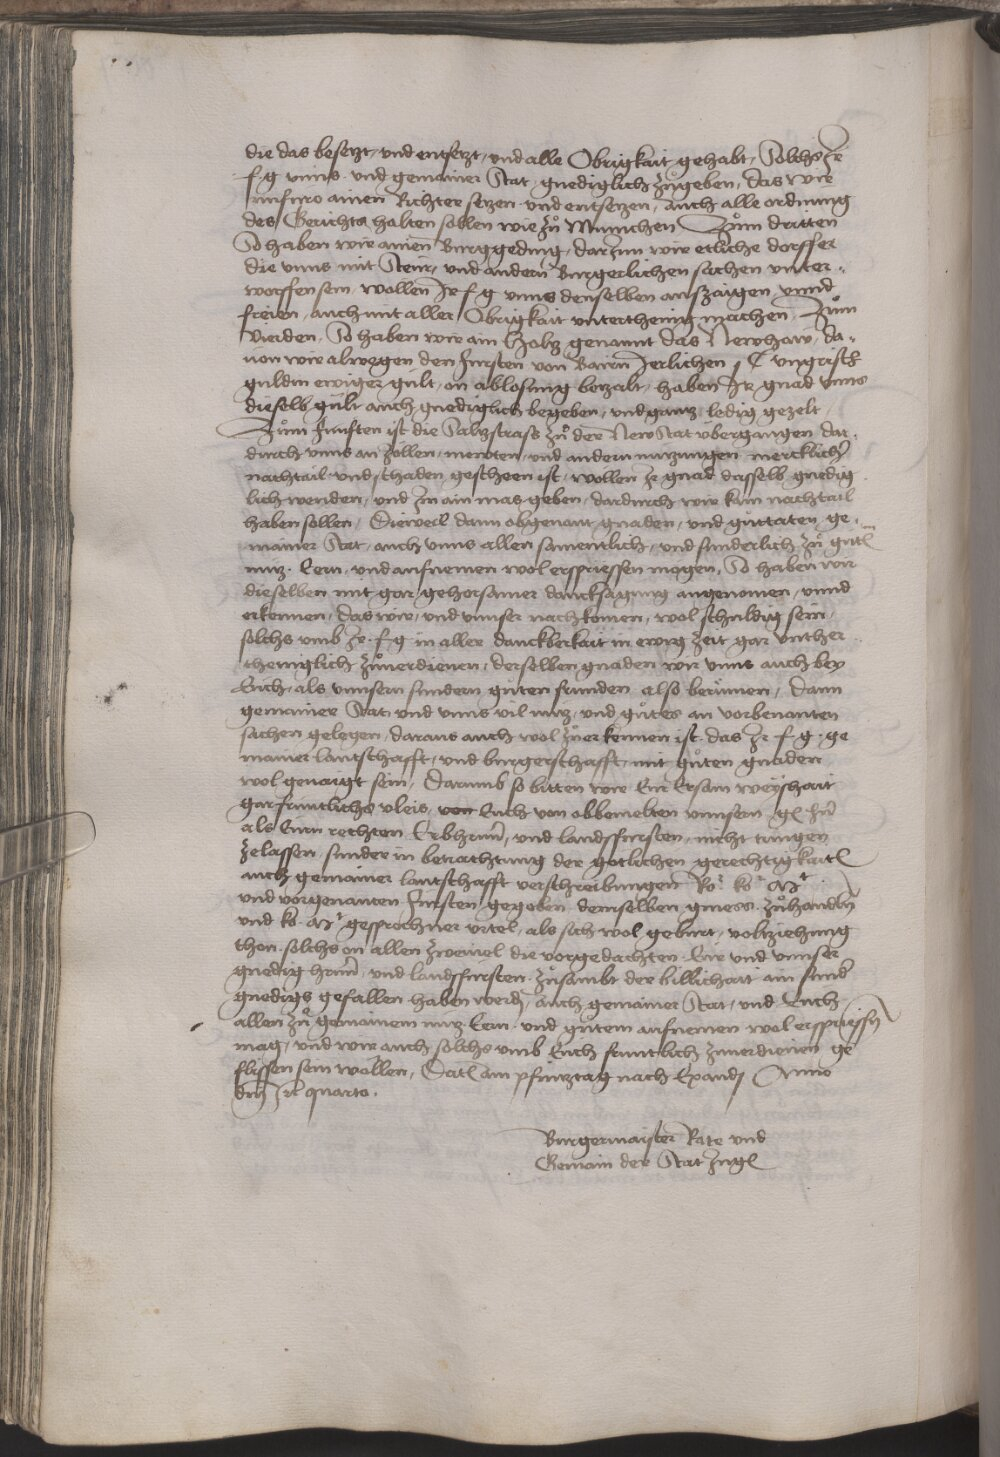 die das besetzt, und entsetzt, und alle Obrigkait gehabt, Solchs Ir
f g vnns. und gemainer Stat, gnediglich zůgeben, das wir
hinfuro ainen Richter setzen und entsetzen, Auch alle ordnung
des Gerichts halten sollen wie zů Munnchen Zům dritten
So haben wir ainen Burggeding, darzun wir etliche dorffer
die vnns mit Steur, und andern Burgerlichen sachen vnter„
worffen sein, wollen Ir f g vnns denselben anszaigen vnnd
freien, auch mit aller Obrigkait vnterthenig machen, Zům
Vierden, So haben wir ain Holtz genannt das Newhaw, da„
uon wir alwegen den Fursten von Bairn Jerlichen j C vngrisch
guldin ewiger gult, on ablosung betzalt, haben Ir gnad vnns
dieselb gult auch gnediglich begeben, und gantz ledig gezelt,
Zům Funften ist die Saltzstrass zů der NewStat ubergangen dar„
durch vnns an zollen, mewten, und andern nutzungen mercklicher
nachtail und schaden gescheen ist, wollen Ir gnad dasselb gnedig
lich wenden, und zu ain mas geben, dardurch wir kain nachtail
haben sollen, Dieweil dann obgenant gnaden, und gůttaten ge„
mainer Stat, auch vnns allen samentlich, und sunderlich zů gůt
nutz. Eern, und aufnemen wol erspriessen mogen, So haben wir
dieselben mit gar gehorsamer dancksagung angenomen, vnnd
erkennen, das wir, und vnnser nachkomen, wol schuldig sein,
solchs umb Ir. f. g in aller danckberkait in ewig zeit gar vnther
theniglich zůuerdienen, derselben gnaden wir vnns auch bey
Euch, als vnnsern sundern gůten frunden also berumen, Dann
gemainer Stat und vnns vil nutz, und gůtes an vorbenanten
sachen gelegen, daraus auch wol zůerkennen ist. das Ir f. g. ge
mainer lantschafft, und burgerschafft, mit gůten gnaden
wol genaigt sein, Darumb so bitten wir Eur Ersam weyshait
gar fruntlichs vleis, von Euch von obbemelten vnnsern g. hrn
als Eurn rechten Erbhrnn, und landsfursten, nicht tringen
zelassen, sunder in betrachtung der gotlichen gerechtigkait
auch gemainer lantschafft verschreibungen Ro. ko. Mt.
und vorgenanten Fursten, gegeben demselben gmess zůhanndln
und ko. Mt gesprochner vrtel, als sich wol geburt, volziehung
thon. solchs on allen zweiuel die vorgedachten Eur und vnnser
gnedig hrnn, und landsfursten zůsambt der billichait ain sund
gnedigs gefallen haben werd, auch gemainer Stat, und Euch
allen zů gemainem nutz Eern. und gutem aufnemen wol erspriessn
mag, und wir auch solchs umb Euch fruntlich zuuerdienen ge
flissen sein wollen, Dat am pfintztag nach Exaudi Anno
dni 1c quarto.
Burgermaister Rate und
Gemain der Stat Ingl